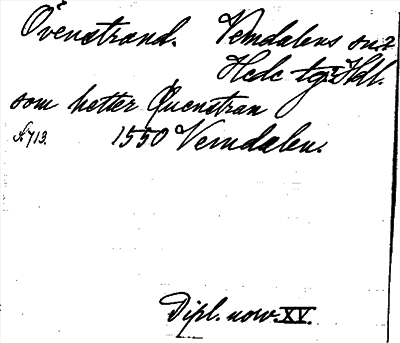 Övenstrand. Vemdalens sn.?
Hede tg. Hdl.
som hetter Quenstran
s. 713. 1550 Vemdalen.
Dipl. norv. XV.